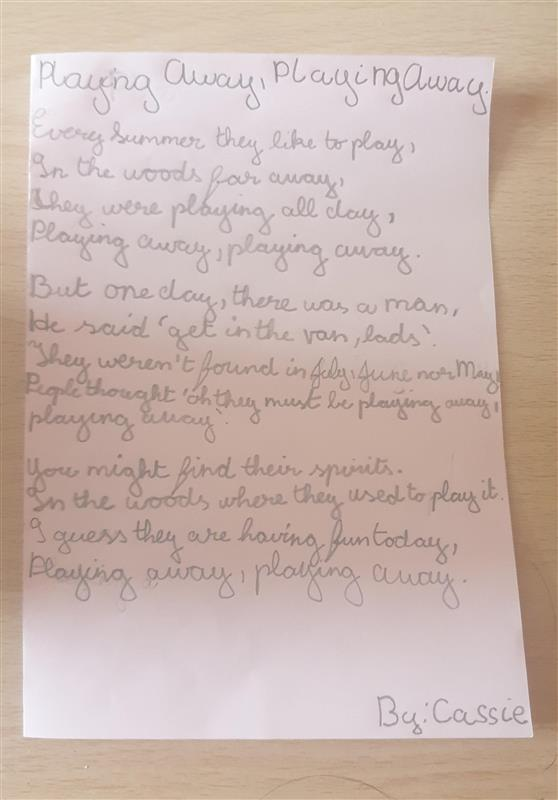 Playing Away, Playing Away.
Every Summer they like to play,
In the woods far away,
They were playing all day,
Playing away, playing away.
But one day, there was a man,
He said 'get in the van, lads'.
They weren't found in July, June nor May,
People thought 'oh they must be playing away,
playing away'.
You might find their spirits.
In the woods where they used to play it.
I guess they are having fun today,
Playing away, playing away.
By: Cassie